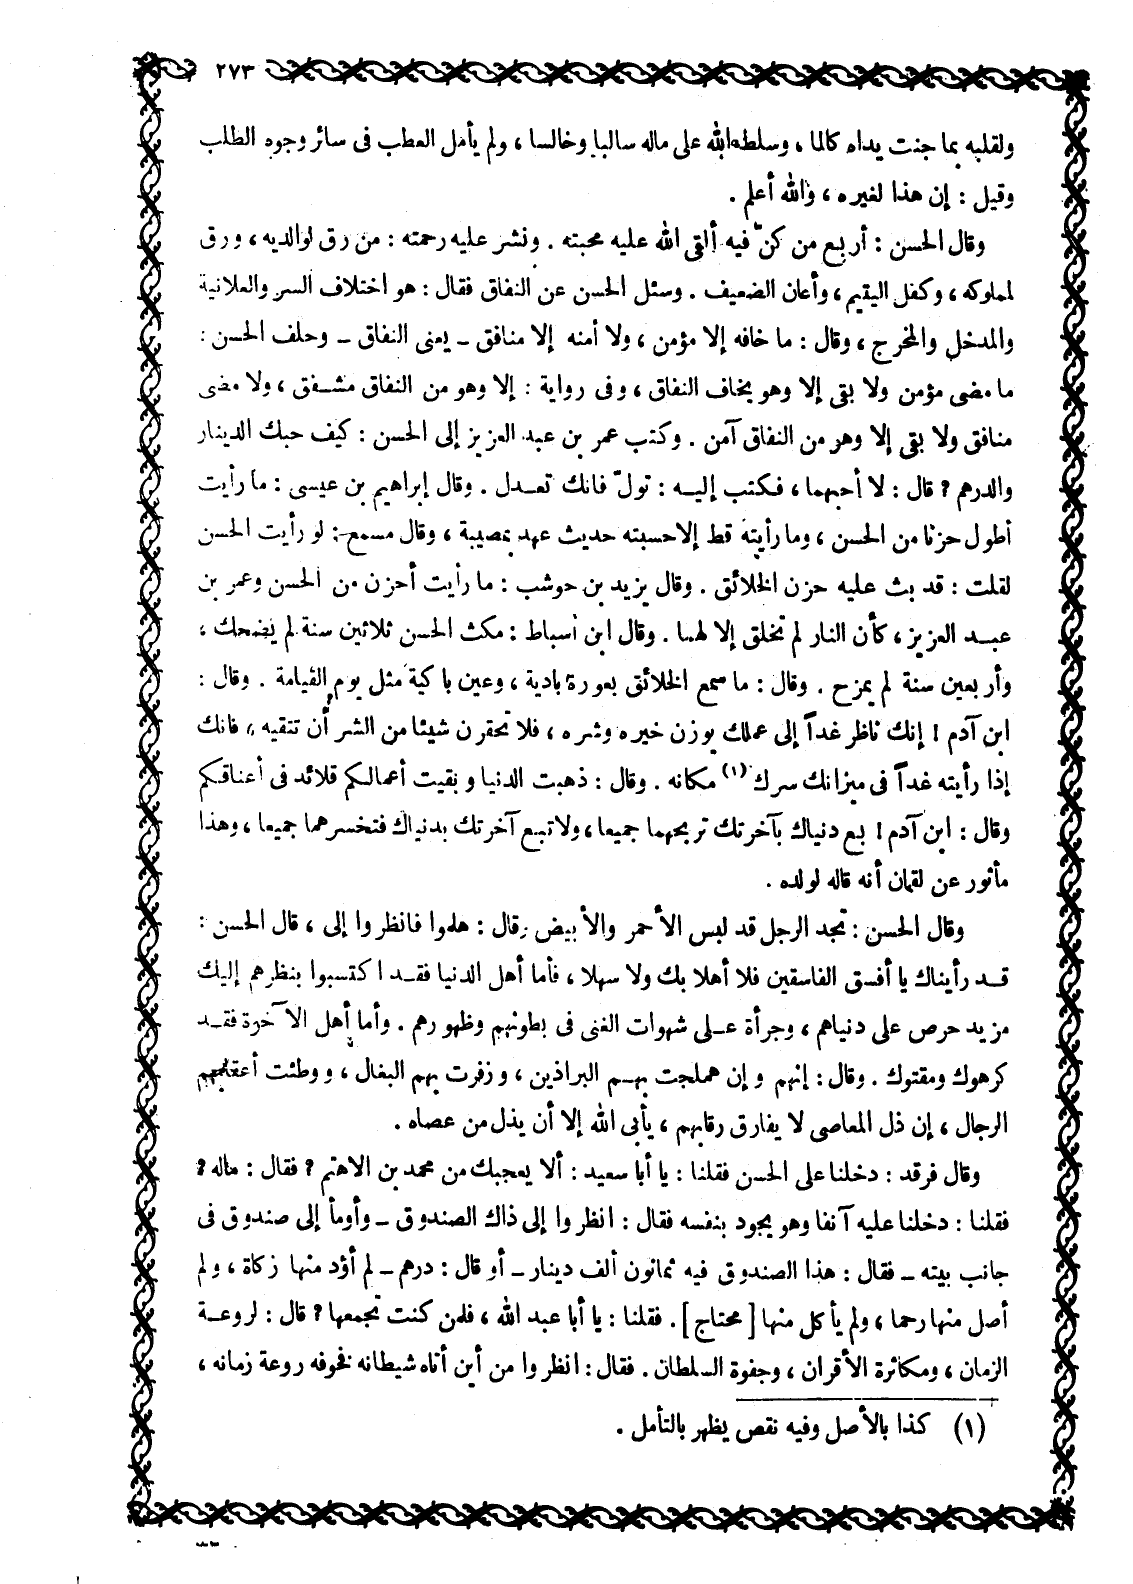 ٢٧٣
ولقلبه بما جنت يداه كالما ، وسلطه الله على ماله سالبا وخالسا ، ولم يأمل العطب فى سائر وجوه الطلب
وقيل : إن هذا لغيره ، والله أعلم .
وقال الحسن : أربع من كنّ فيه ألقى الله عليه محبته . ونشر عليه رحمته : من رق لوالديه ، ورق
لمملوكه ، وكفل اليتيم ، وأعان الضعيف . وسئل الحسن عن النفاق فقال : هو اختلاف السر والعلانية
والمدخل والمخرج ، وقال : ما خافه إلا مؤمن ، ولا أمنه إلا منافق ــ يعنى النفاق ــ وحلف الحسن :
ما مضى مؤمن ولا بقى إلا وهو يخاف النفاق ، وفى رواية : إلا وهو من النفاق مشفق ، ولا مضى
منافق ولا بقى إلا وهو من النفاق آمن . وكتب عمر بن عبد العزيز إلى الحسن : كيف حبك الدينار
والدرهم ؟ قال : لا أحبهما ، فكتب إليه : تولّ فانك تعدل . وقال إبراهيم بن عيسى : ما رأيت
أطول حزنا من الحسن ، وما رأيته قط إلا حسبته حديث عهد بمصيبة ، وقال مسمع : لو رأيت الحسن
لقلت : قد بث عليه حزن الخلائق . وقال يزيد بن حوشب : ما رأيت أحزن من الحسن وعمر بن
عبد العزيز ، كأن النار لم تخلق إلا لهما . وقال ابن أسباط : مكث الحسن ثلاثين سنة لم يضحك ،
وأربعين سنة لم يمزح . وقال : ما سمع الخلائق بعورة بادية ، وعين باكية مثل يوم القيامة . وقال :
ابن آدم ! إنك ناظر غداً إلى عملك يوزن خيره وشره ، فلا تحقرن شيئا من الشر أن تتقيه ، فانك
إذا رأيته غداً فى ميزانك سرك (١) مكانه . وقال : ذهبت الدنيا وبقيت أعمالكم قلائد فى أعناقكم
وقال : ابن آدم ! بع دنياك بآخرتك تربحهما جميعا ، ولا تبع آخرتك بدنياك فتخسرهما جميعا ، وهذا
مأثور عن لقمان أنه قاله لولده .
وقال الحسن : تجد الرجل قد لبس الأحمر والأبيض وقال : هلموا فانظروا إلى ، قال الحسن :
قد رأيناك يا أفسق الفاسقين فلا أهلا بك ولا سهلا ، فأما أهل الدنيا فقد اكتسبوا بنظرهم إليك
مزيد حرص على دنياهم ، وجرأة على شهوات الغنى فى بطونهم وظهورهم . وأما أهل الآخرة فقد
كرهوك ومقتوك . وقال : إنهم وإن هملجت بهم البراذين ، وزفرت بهم البغال ، ووطئت أعقابهم
الرجال ، إن ذل المعاصى لا يفارق رقابهم ، يأبى الله إلا أن يذل من عصاه .
وقال فرقد : دخلنا على الحسن فقلنا : يا أبا سعيد : ألا يعجبك من محمد بن الاهتم ؟ فقال : ماله ؟
فقلنا : دخلنا عليه آنفا وهو يجود بنفسه فقال : انظروا إلى ذاك الصندوق ــ وأومأ إلى صندوق فى
جانب بيته ــ فقال : هذا الصندوق فيه ثمانون ألف دينار ــ أو قال : درهم ــ لم أؤد منها زكاة ، ولم
أصل منها رحما ، ولم يأكل منها [ محتاج ] . فقلنا : يا أبا عبد الله ، فلمن كنت تجمعها ؟ قال : لروعة
الزمان ، ومكاثرة الأقران ، وجفوة السلطان . فقال : انظروا من أين أتاه شيطانه فخوفه روعة زمانه ،
(١) كذا بالأصل وفيه نقص يظهر بالتأمل .